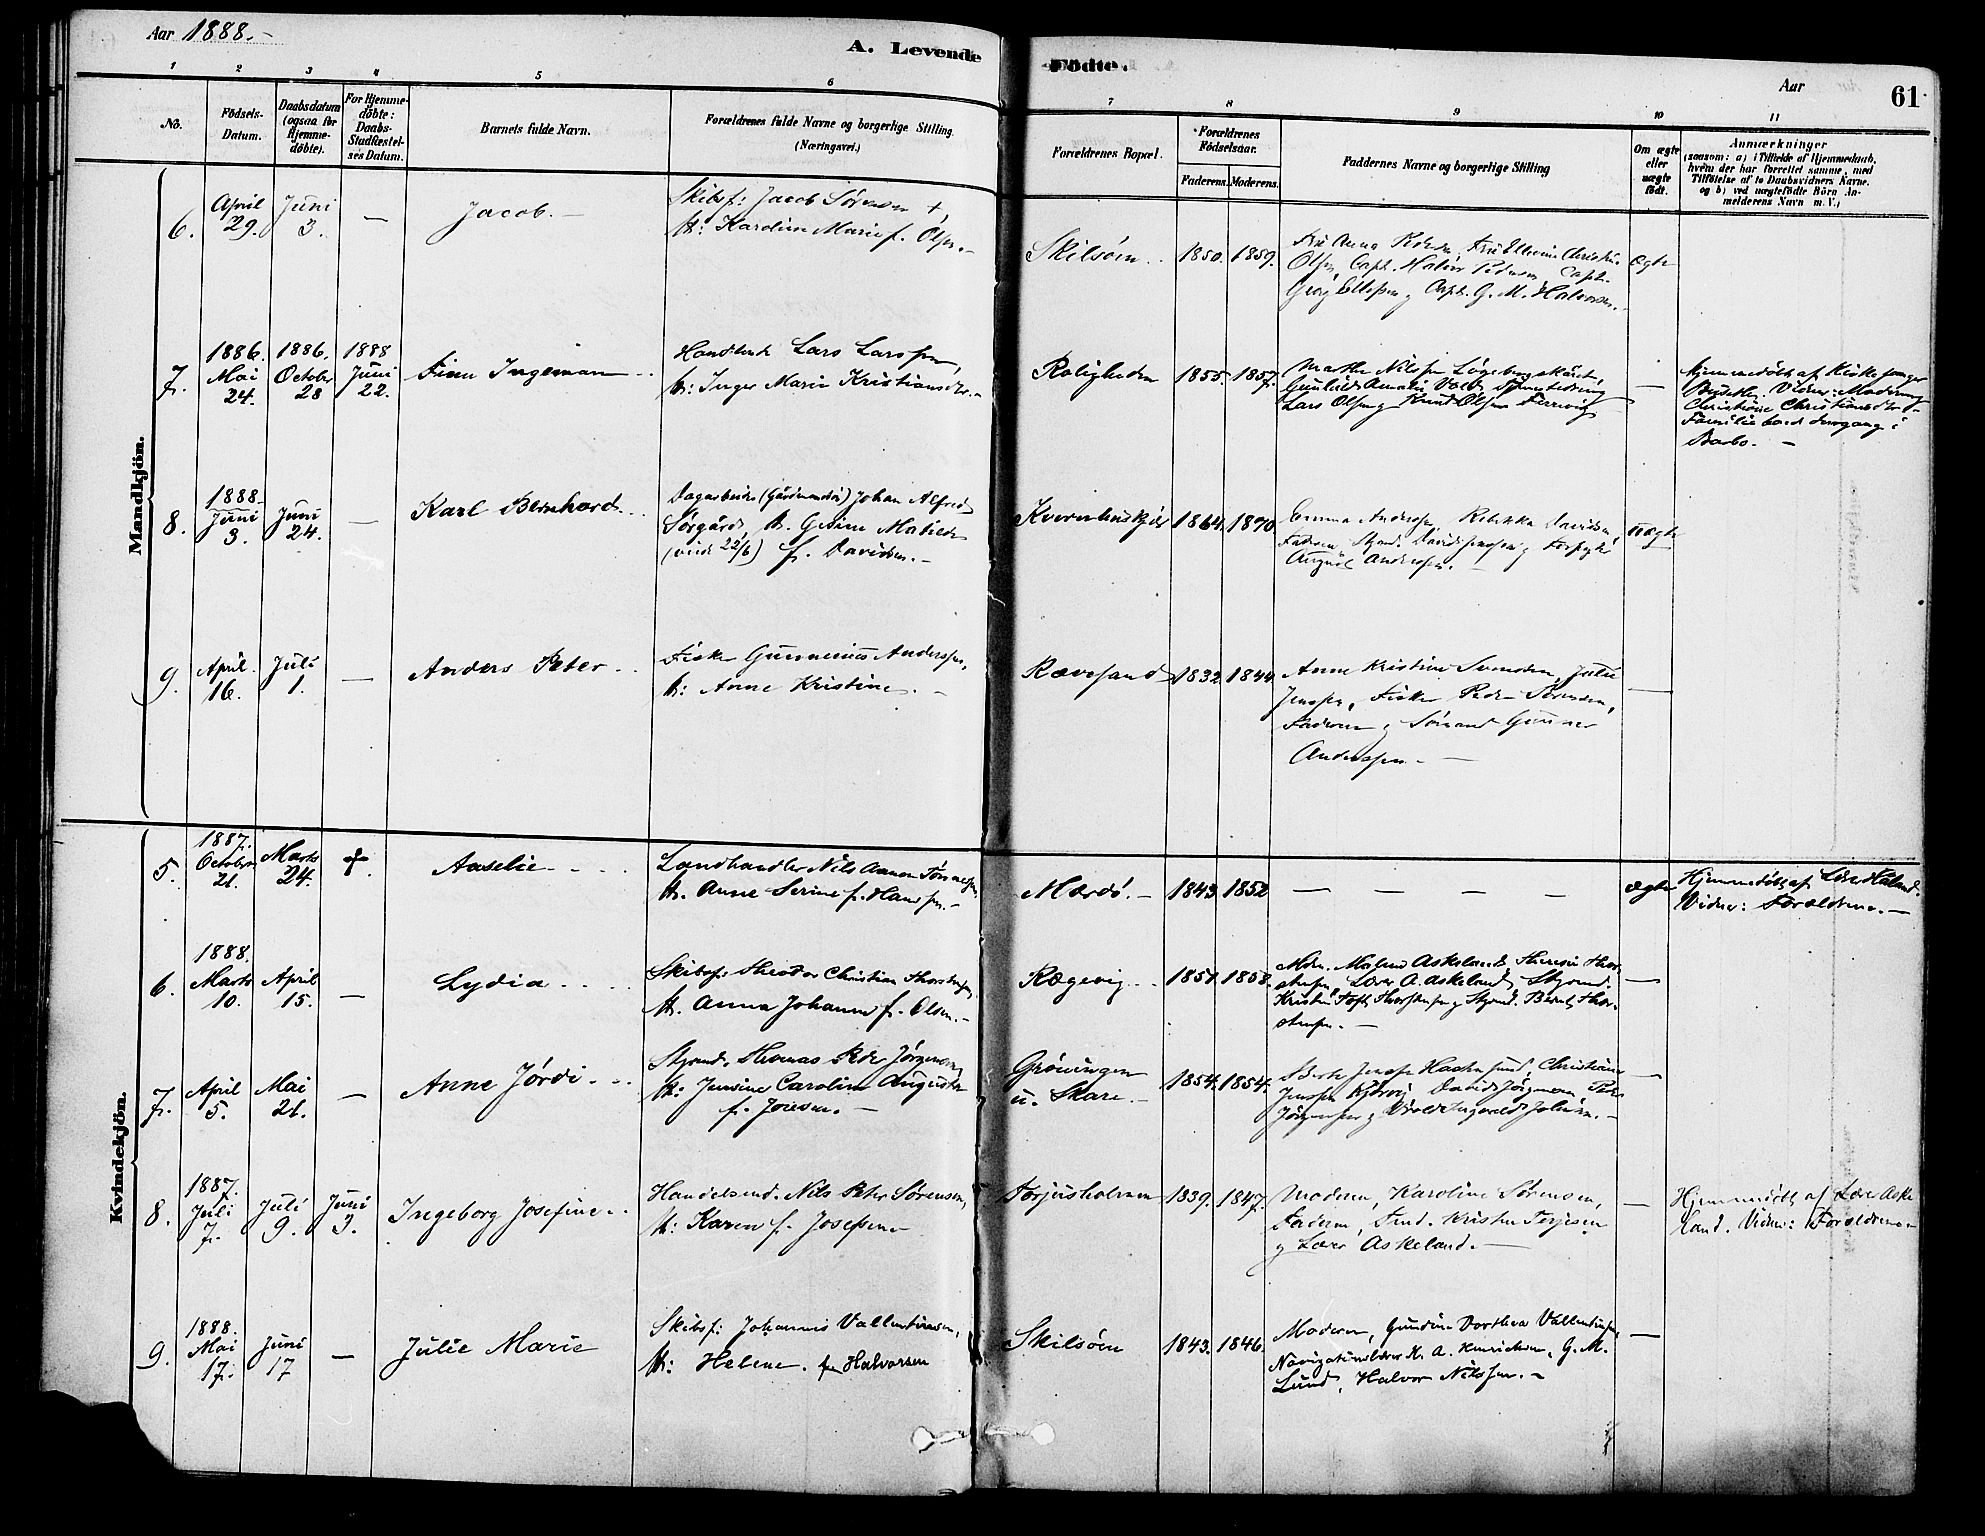 Aar 1888.-
A. Levende
Födte.
Aar
61
1 2 3 4 5 6
7 8 9 10 11
No.
Födsels-
Datum.
Daabsdatum
(ogsaa for
Hjemme-
döbte).
For Hjemme-
döbte:
Daabs-
Stadfæstel-
ses Datum.
Barnets fulde Navn.
Forældrenes fulde Navne og borgerlige Stilling.
(Næringsvei.)
Forældrenes Bopæl.
Forældrenes
Födselsaar.
Faderens.
Moderens.
Faddernes Navne og borgerlige Stilling
Om ægte
eller
uægte
födt.
Anmærkninger
(saasom: a) i Tilfælde af Hjemmedaab,
hvem der har forrettet samme, med
Tilföielse af to Daabsvidners Navne.
og b) ved uægtefödte Börn An-
melderens Navn m. V.)
Mandkjön.
6.
April
29.
Juni
3.
—
Jacob. -
Skibsf: Jacob Sörensen +,
H: Karoline Marie f. Olsen.-
Skilsöen
1850.
1859.
Olsen, Capt.
Capt. G. M. Halvorsen.
ægte
7.
1886.
Mai
24.
1886.
October
28
1888
Juni
22.
Finn Ingeman
Lars Larssen
H: Inger Marie Kristiansdtr.-
Roligheden
1855.
1857.
Marthe Nilssen
Lars Olsen og Knud Olsen
—
Hjemmedöbt af Kirkesanger
Vidner: Madam
Christiane Christiansdtr
Familie
Barbo. -
8.
1888.
Juni
3.
Juni
24.
—
Karl Bernhard
Dagarbeider (Gårdmandssön) Johan Alfred
Sørgård,
(viede 22/6) f. Davidsen.-
1864.
1870
Emma Andersen, Rebekka Davidsen,
Faderen,
August Anderssen.-
uægte
9.
April
16.
Juli
1.
—
Anders Peter
Fisker Gunnenius Anderssen,
H: Anne Kristine. -
Rævesand
1832.
1844.
Anne Kristine Svendsen, Julie
Jenssen, Fisker Peder
Faderen og Sömand Gunner
Anderssen. -
—
Kvindekjön.
5.
1887.
October
21.
Marts
24.
†.
Aaselie
Landhandler Nils Aanon Tönnessen
H. Anne Serine f. Hanssen.-
Mærdö.-
1843
1852
— — — —
ægte
Hjemmedöbt af Lærer Höland.
Vidner: Forældrene.-
6.
1888.
Marts
10.
April
15.
—
Lydia
Skibsf: Theodor Christian Thorstensen,
H. Anna Johanne f. Olsen.-
Rægevig
1851.
1858.
Mdm. Malene Askeland, Therese Thor-
stensen, Lærer A. Askeland, Styrmd.
Kristen Toft Thorstensen og Styrmd. Bernt Thor-
stensen.-
—
7.
April
5.
Mai
21.
—
Anne Jördi
Styrmd. Thomas Peder Jörgensen
H: Jensine Caroline Augusta
f. Joensen.-
Gröningen
u. Skare.-
1854.
1854.
Christiane
Jenssen Kjörvig, David Jörgensen,
Jörgensen og
—
8.
1887.
Juli
7.
Juli
9.
Juni
3.
Ingeborg Josefine
Handelsmd. Nils Peter Sörensen,
H: Karen f. Josefsen-
Torjusholmen
1839.
1847.
Moderen, Karoline Sörensen,
Faderen, Kristen Terjesen
og Lærer Askeland.-
—
Hjemmedöbt af Lærer Aske
land. Vidner: Forældrene-
9.
1888.
Mai
17.
Juni
17
—
Julie Marie
Skibsf: Johannes Vallentinsen,
H: Helene. f. Halvorsen
Skilsöen
1843.
1846.
Moderen, Gundine Dorthea Vallentinsen,
Navigationslærer K. A. Henrichsen, G. M.
Lund, Halvor Nilssen.-
—